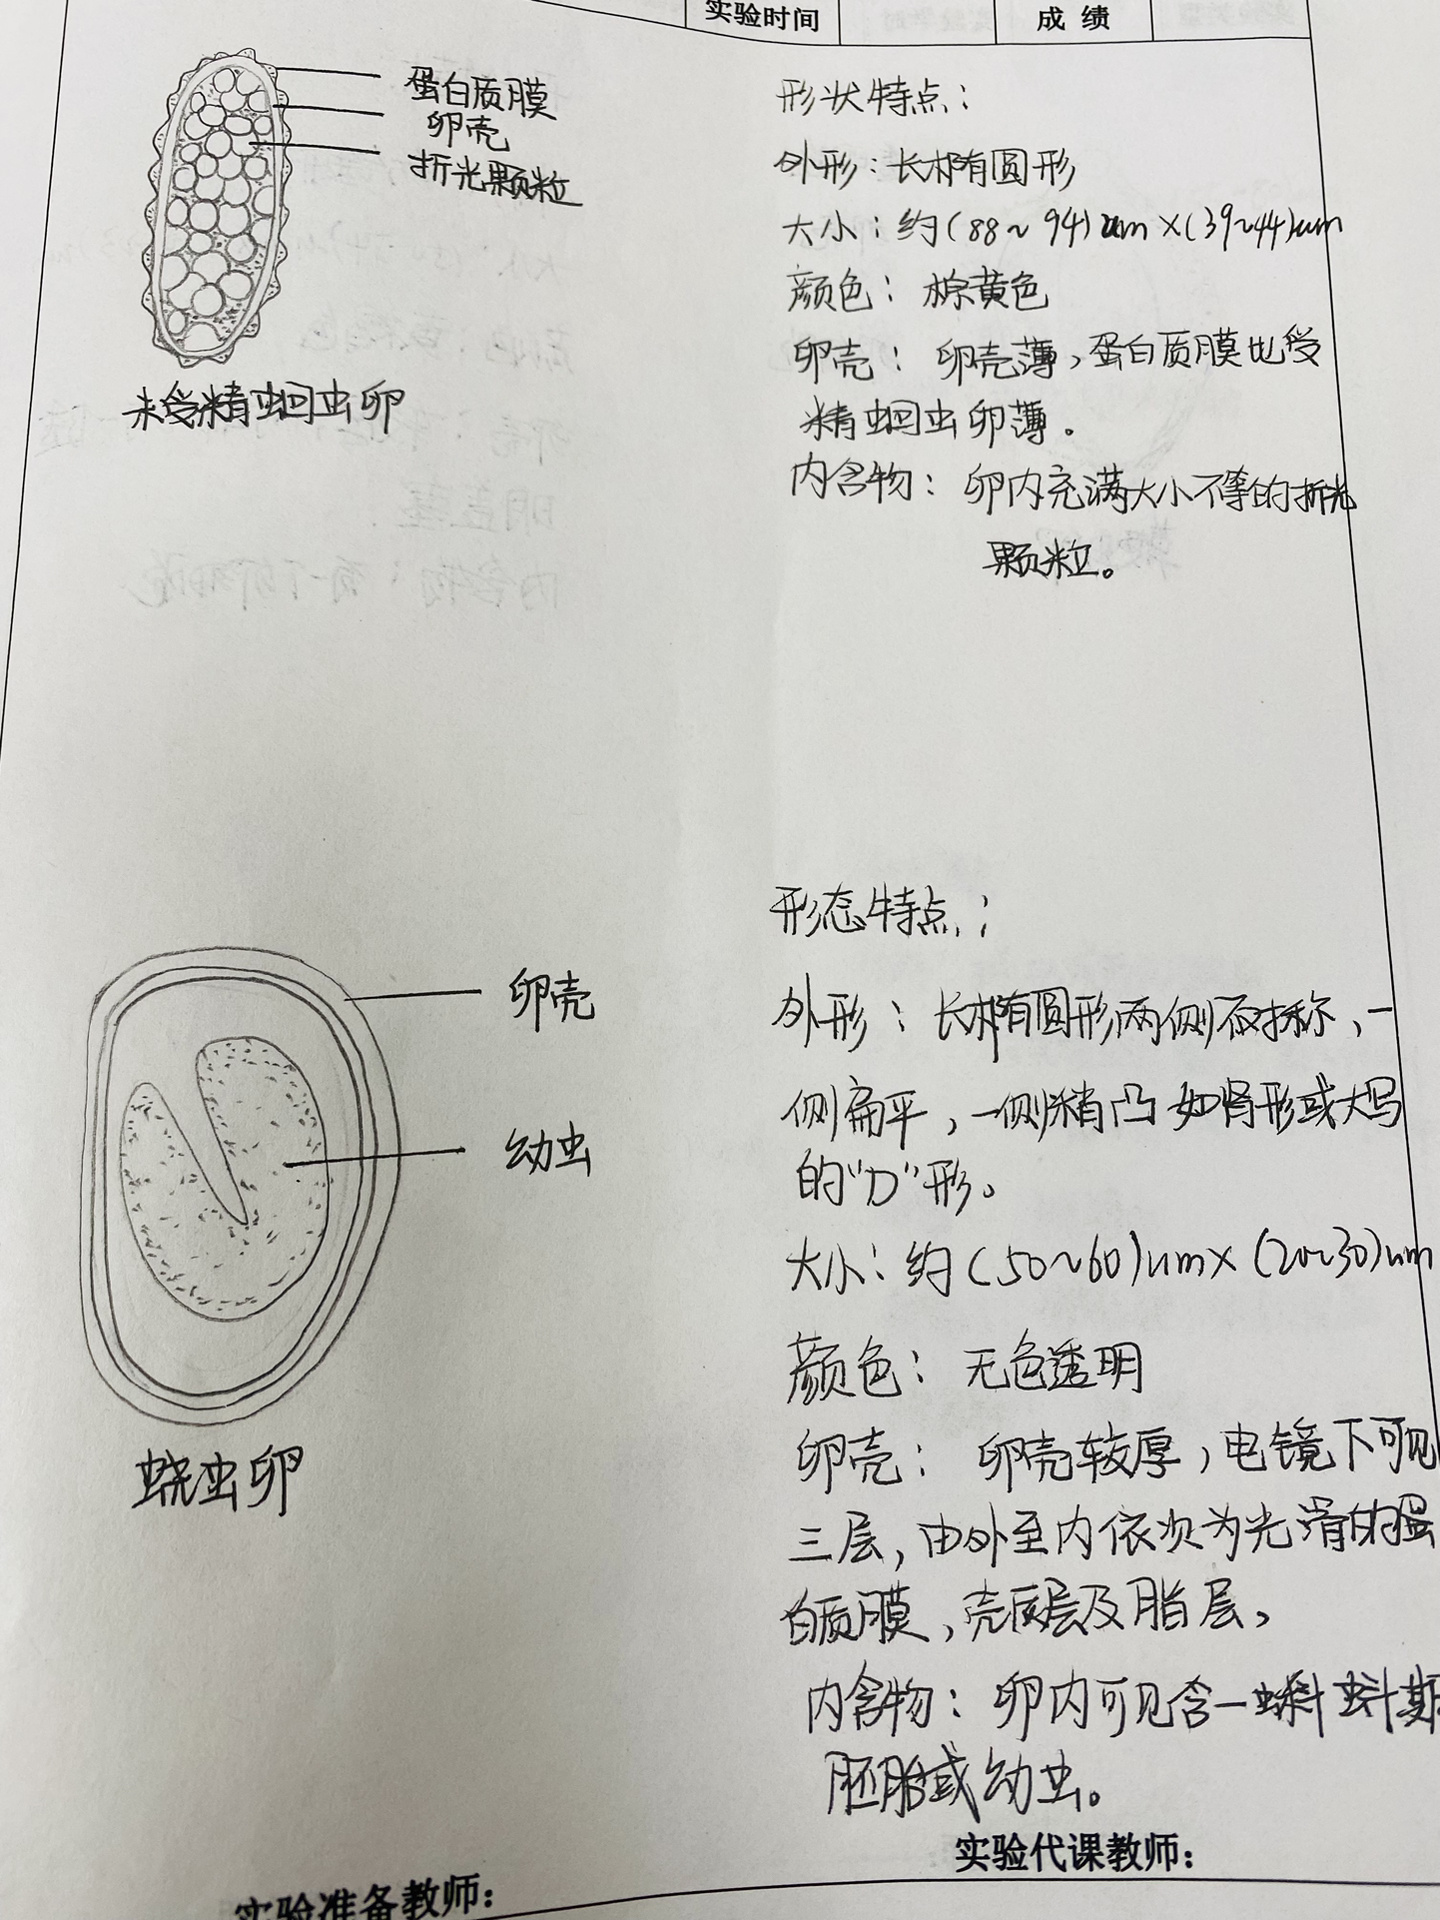 实验时间 成绩
蛋白质膜
卵壳
折光颗粒
未受精蛔虫卵
形状特点：
外形：长椭圆形
大小：约(88~94)um×(39~44)um
颜色：棕黄色
卵壳：卵壳薄，蛋白质膜比受
精蛔虫卵薄。
内含物：卵内充满大小不等的折光
颗粒。
卵壳
幼虫
蛲虫卵
形态特点：
外形：长椭圆形两侧不对称，一
侧扁平，一侧稍凸如肾形或大写
的“D”形。
大小：约(50~60)um×(20~30)um
颜色：无色透明
卵壳：卵壳较厚，电镜下可见
三层，由外至内依次为光滑的蛋
白质膜，壳质层及脂层，
内含物：卵内可见含一蝌蚪期
胚胎或幼虫。
实验代课教师：
实验准备教师：